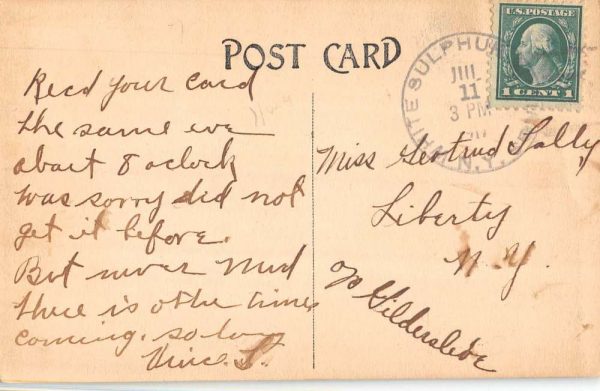 POST CARD
Recd your card
the same eve
about 8 oclock
was sorry did not
get it before.
But never mind
there is other times
coming. so long
Vince. L.
WHITE SULPHUR
JUL
11
3 PM
N.Y.
U.S. POSTAGE
1 CENT 1
Miss Gertrud Lally
Liberty
N.Y.
c/o Gildersleve